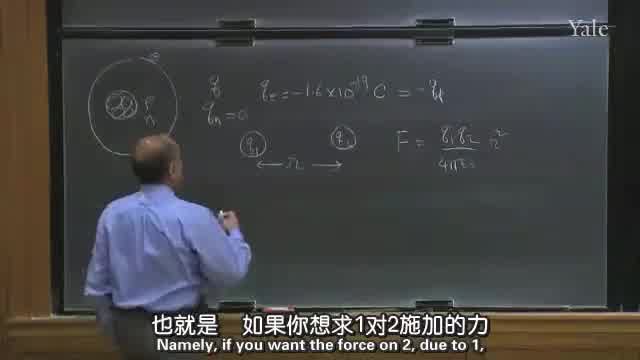 Yale
q qe = -1.6 × 10^-19 C = -qp
P
n
qn = 0
q1 q2 F = q1 q2 / 4πε0 r^2
← r →
也就是 如果你想求1对2施加的力
Namely, if you want the force on 2, due to 1,